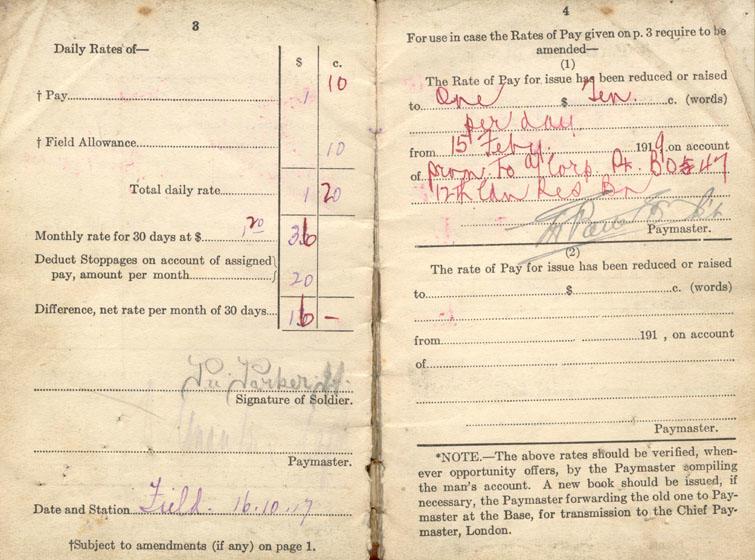 3
Daily Rates of—
$ c.
† Pay 1 10
† Field Allowance 10
Total daily rate 1 20
Monthly rate for 30 days at $ 1.20 36
Deduct Stoppages on account of assigned
pay, amount per month 20
Difference, net rate per month of 30 days 16 —
Parker
Signature of Soldier.
Paymaster.
Date and Station Field. 16.10.17
†Subject to amendments (if any) on page 1.
4
For use in case the Rates of Pay given on p. 3 require to be
amended—
(1)
The Rate of Pay for issue has been reduced or raised
to One $ Ten. c. (words)
per day
from 15 Feby. 1919, on account
of prom to a/Corp Pt. II BO 47
12th Can Res Bn
Paymaster.
(2)
The rate of Pay for issue has been reduced or raised
to $ c. (words)
from 191 , on account
of
Paymaster.
*NOTE.—The above rates should be verified, when-
ever opportunity offers, by the Paymaster compiling
the man's account. A new book should be issued, if
necessary, the Paymaster forwarding the old one to Pay-
master at the Base, for transmission to the Chief Pay-
master, London.